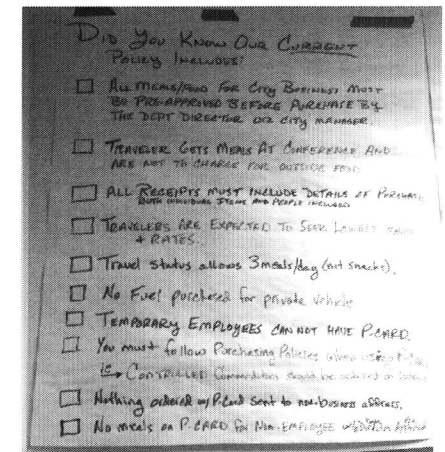 DID YOU KNOW OUR CURRENT
POLICY INCLUDES:
ALL MEALS/FOOD FOR CITY BUSINESS MUST
BE PRE-APPROVED BEFORE PURCHASE BY
THE DEPT DIRECTOR OR CITY MANAGER.
TRAVELER GETS MEALS AT CONFERENCE AND
ARE NOT TO CHARGE FOR OUTSIDE FOOD
ALL RECEIPTS MUST INCLUDE DETAILS OF PURCHASE
BOTH INDIVIDUAL ITEMS AND PEOPLE INCLUDED
TRAVELERS ARE EXPECTED TO SEEK LOWEST
+ RATES.
Travel status allows 3 meals/day (not snacks).
No Fuel purchased for private vehicle
TEMPORARY EMPLOYEES CAN NOT HAVE P-CARD.
You must follow Purchasing Policies when using
CONTROLLED Commodities should be ordered on
Nothing ordered w/ P-Card sent to non-business address.
No meals on P-CARD for Non-EMPLOYEE